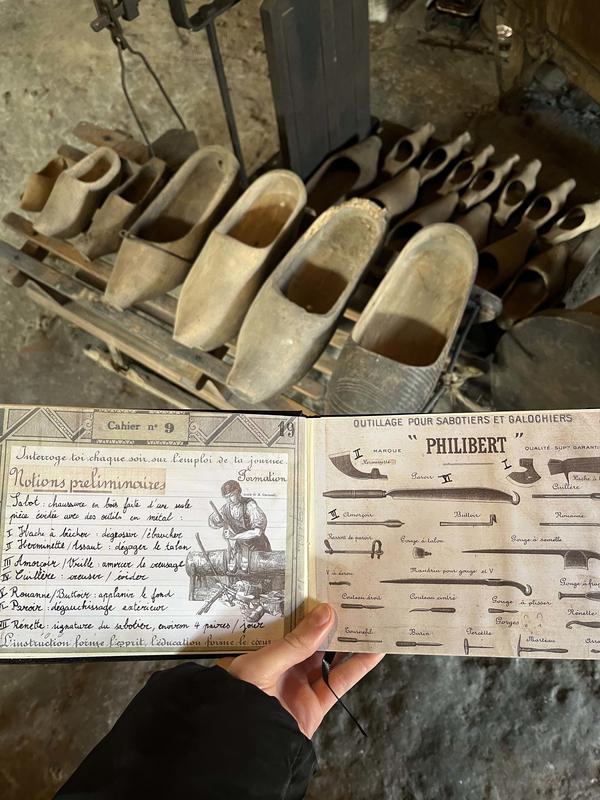 Cahier n° 9
19
Interroge toi chaque soir sur l'emploi de ta journée.
Notions préliminaires
Formation
Sabot : chaussure en bois faite d'une seule
pièce évidée avec des outils en métal :
I Hache à bûcher : dégrossir / ébaucher
II Herminette / Assaut : dégager le talon
III Amorçoir / Vrille : amorcer le creusage
IV Cuillère : creuser / évider
V Rouanne / Buttoir : applanir le fond
VI Paroir : dégauchissage extérieur
VII Rénette : signature du sabotier, environ 4 paires / jour
L'instruction forme l'esprit, l'éducation forme le cœur
OUTILLAGE POUR SABOTIERS ET GALOCHIERS
MARQUE "PHILIBERT" QUALITÉ SUPre GARANTI
II
Herminette
Paroir VI
I
Hache à
Cuillère
III Amorçoir
Buttoir
Rouanne
Ressort de paroir
Gouge à talon
Gouge à semelle
V à écrou
Mandrin pour gouge et V
Gouge à
Couteau droit
Couteau cintré
Gouge à plisser
Gorges
Rénette
Tournefil
Burin
Percette
Marteau